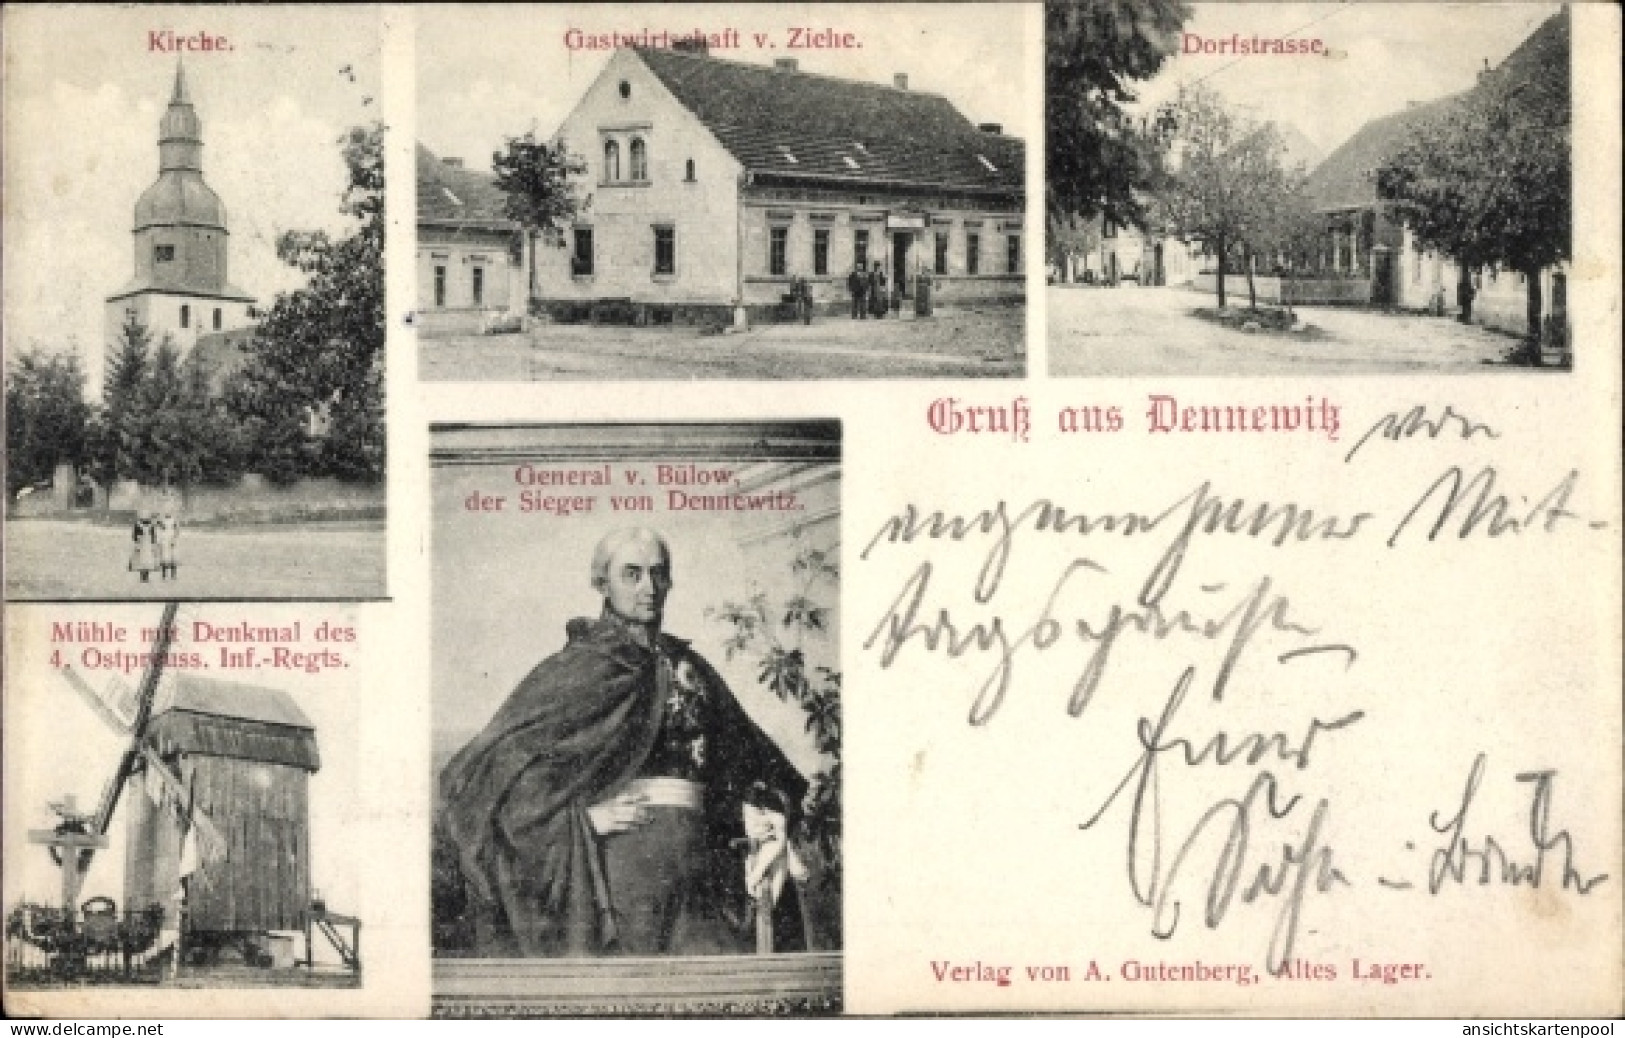 Kirche.
Gastwirtschaft v. Ziehe.
Dorfstrasse.
Gruß aus Dennewitz
von
angenehmer Mit-
tagspause
Euer
Sohn u. Bruder
General v. Bülow,
der Sieger von Dennewitz.
Mühle mit Denkmal des
4. Ostpreuss. Inf.-Regts.
Verlag von A. Gutenberg, Altes Lager.
delcampe.net
ansichtskartenpool